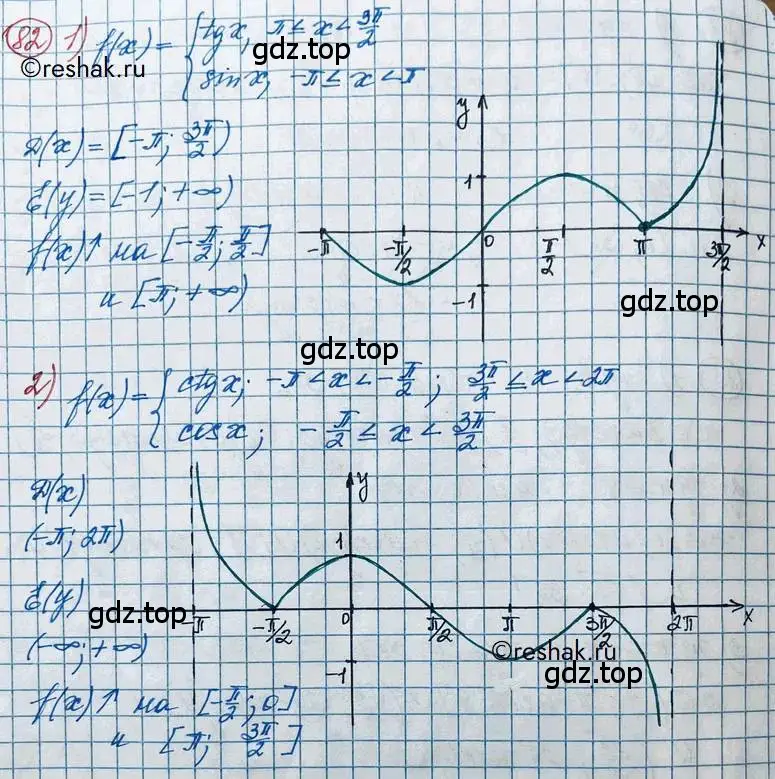 82 1) f(x) = { tg x, π ≤ x < 3π/2
sin x, -π ≤ x < π
gdz.top
©reshak.ru
D(x) = [-π; 3π/2)
E(y) = [-1; +∞)
f(x)↑ на [-π/2; π/2]
и [π; +∞)
y
1
-π -π/2 0 π/2 π 3π/2 x
-1
gdz.top
gdz.top
2) f(x) = { ctg x; -π < x < -π/2; 3π/2 ≤ x < 2π
cos x; -π/2 ≤ x < 3π/2
D(x)
(-π; 2π)
E(y)
(-∞; +∞)
f(x)↑ на [-π/2; 0]
и [π; 3π/2]
y
1
gdz.top
-π -π/2 0 π/2 π 3π/2 2π x
-1
©reshak.ru
gdz.top